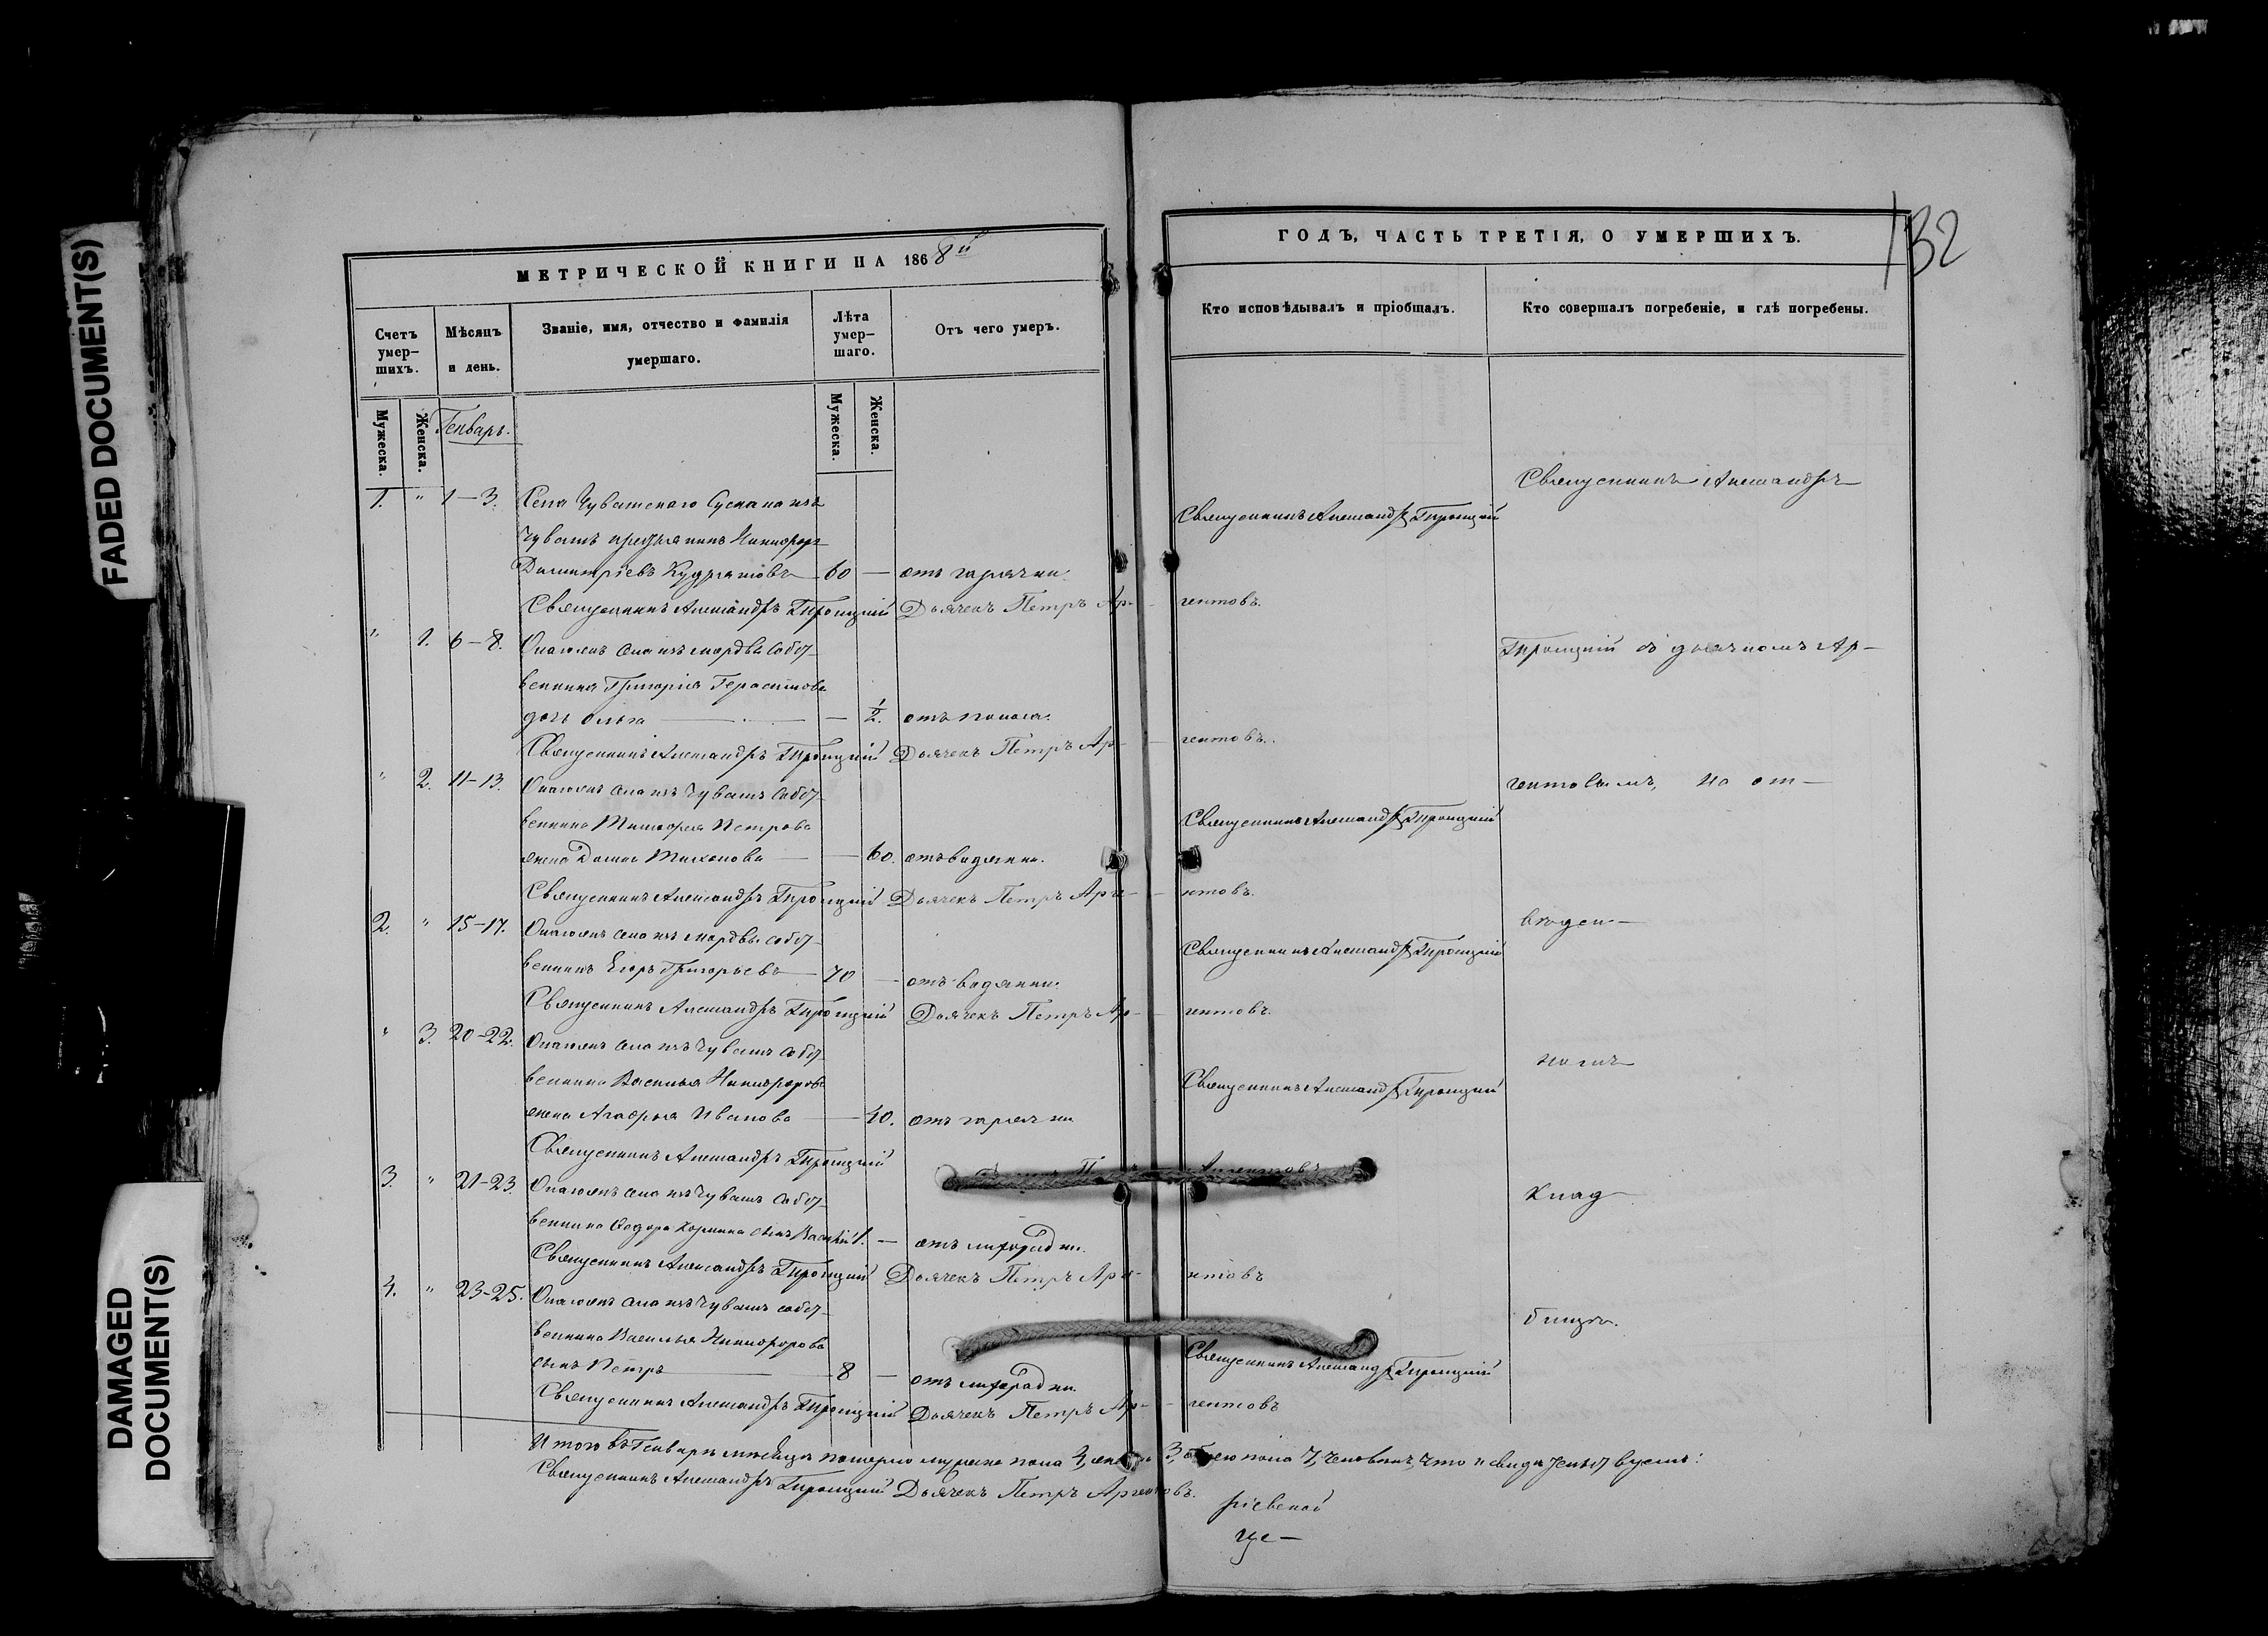 FADED DOCUMENT(S)
DAMAGED
DOCUMENT(S)
МЕТРИЧЕСКОЙ КНИГИ НА 1868й
Счетъ умер-шихъ.
Мѣсяцъ и день.
Званіе, имя, отчество и фамилія умершаго.
Лѣта умер-шаго.
Отъ чего умеръ.
Мужеска.
Женска.
Генварь.
Мужеска.
Женска.
1. " 1–3. Села Чувашскаго Сускана изъ
чувашъ крестьянинъ Никифоръ
Димитріевъ Кудряшовъ 60 — отъ горячки.
Священникъ Александръ Троицкій Дьячекъ Петръ Ар-гентовъ.
" 1. 6–8. Онагожъ села изъ мордвы собст-
венника Григорія Герасимова
дочь Ольга — 1/2. отъ поноса.
Священникъ Александръ Троицкій Дьячекъ Петръ Ар-гентовъ.
" 2. 11–13. Онагожъ села изъ чувашъ собст-
венника Тимофея Петрова
жена Домна Тихонова — 60. отъ водянки.
Священникъ Александръ Троицкій Дьячекъ Петръ Арге-нтовъ.
2. " 15–17. Онагожъ села изъ мордвы собст-
венникъ Егоръ Григорьевъ 70 — отъ водянки.
Священникъ Александръ Троицкій Дьячекъ Петръ Ар-гентовъ.
" 3. 20–22. Онагожъ села изъ чувашъ собст-
венника Василья Никифорова
жена Агафья Иванова — 40. отъ горячки
Священникъ Александръ Троицкій
3. " 21–23. Онагожъ села изъ чувашъ собст-
венника Ѳедора сынъ Василій 1. — отъ лихорадки.
Священникъ Александръ Троицкій Дьячекъ Петръ Арге-нтовъ
4. " 23–25. Онагожъ села изъ чувашъ собст-
венника Василья Никифорова
сынъ Петръ 8 — отъ лихорадки.
Священникъ Александръ Троицкій Дьячекъ Петръ Ар-гентовъ
Итого въ Генварѣ мѣсяцѣ померло мужска пола 4, 3, обоего пола 7, человѣкъ, что и свидѣтельствуемъ:
Священникъ Александръ Троицкій Дьячекъ Петръ Аргентовъ.
ГОДЪ, ЧАСТЬ ТРЕТІЯ, О УМЕРШИХЪ.
132
Кто исповѣдывалъ и пріобщалъ.
Кто совершалъ погребеніе, и гдѣ погребены.
Священникъ Александръ Троицкій
Священникъ Александръ Троицкій
Священникъ Александръ Троицкій
Священникъ Александръ Троицкій
Священникъ Александръ Троицкій
Священникъ Александръ
Троицкій съ дьячкомъ Ар-
гентовымъ, на от-
веден-
номъ
клад
бищѣ.